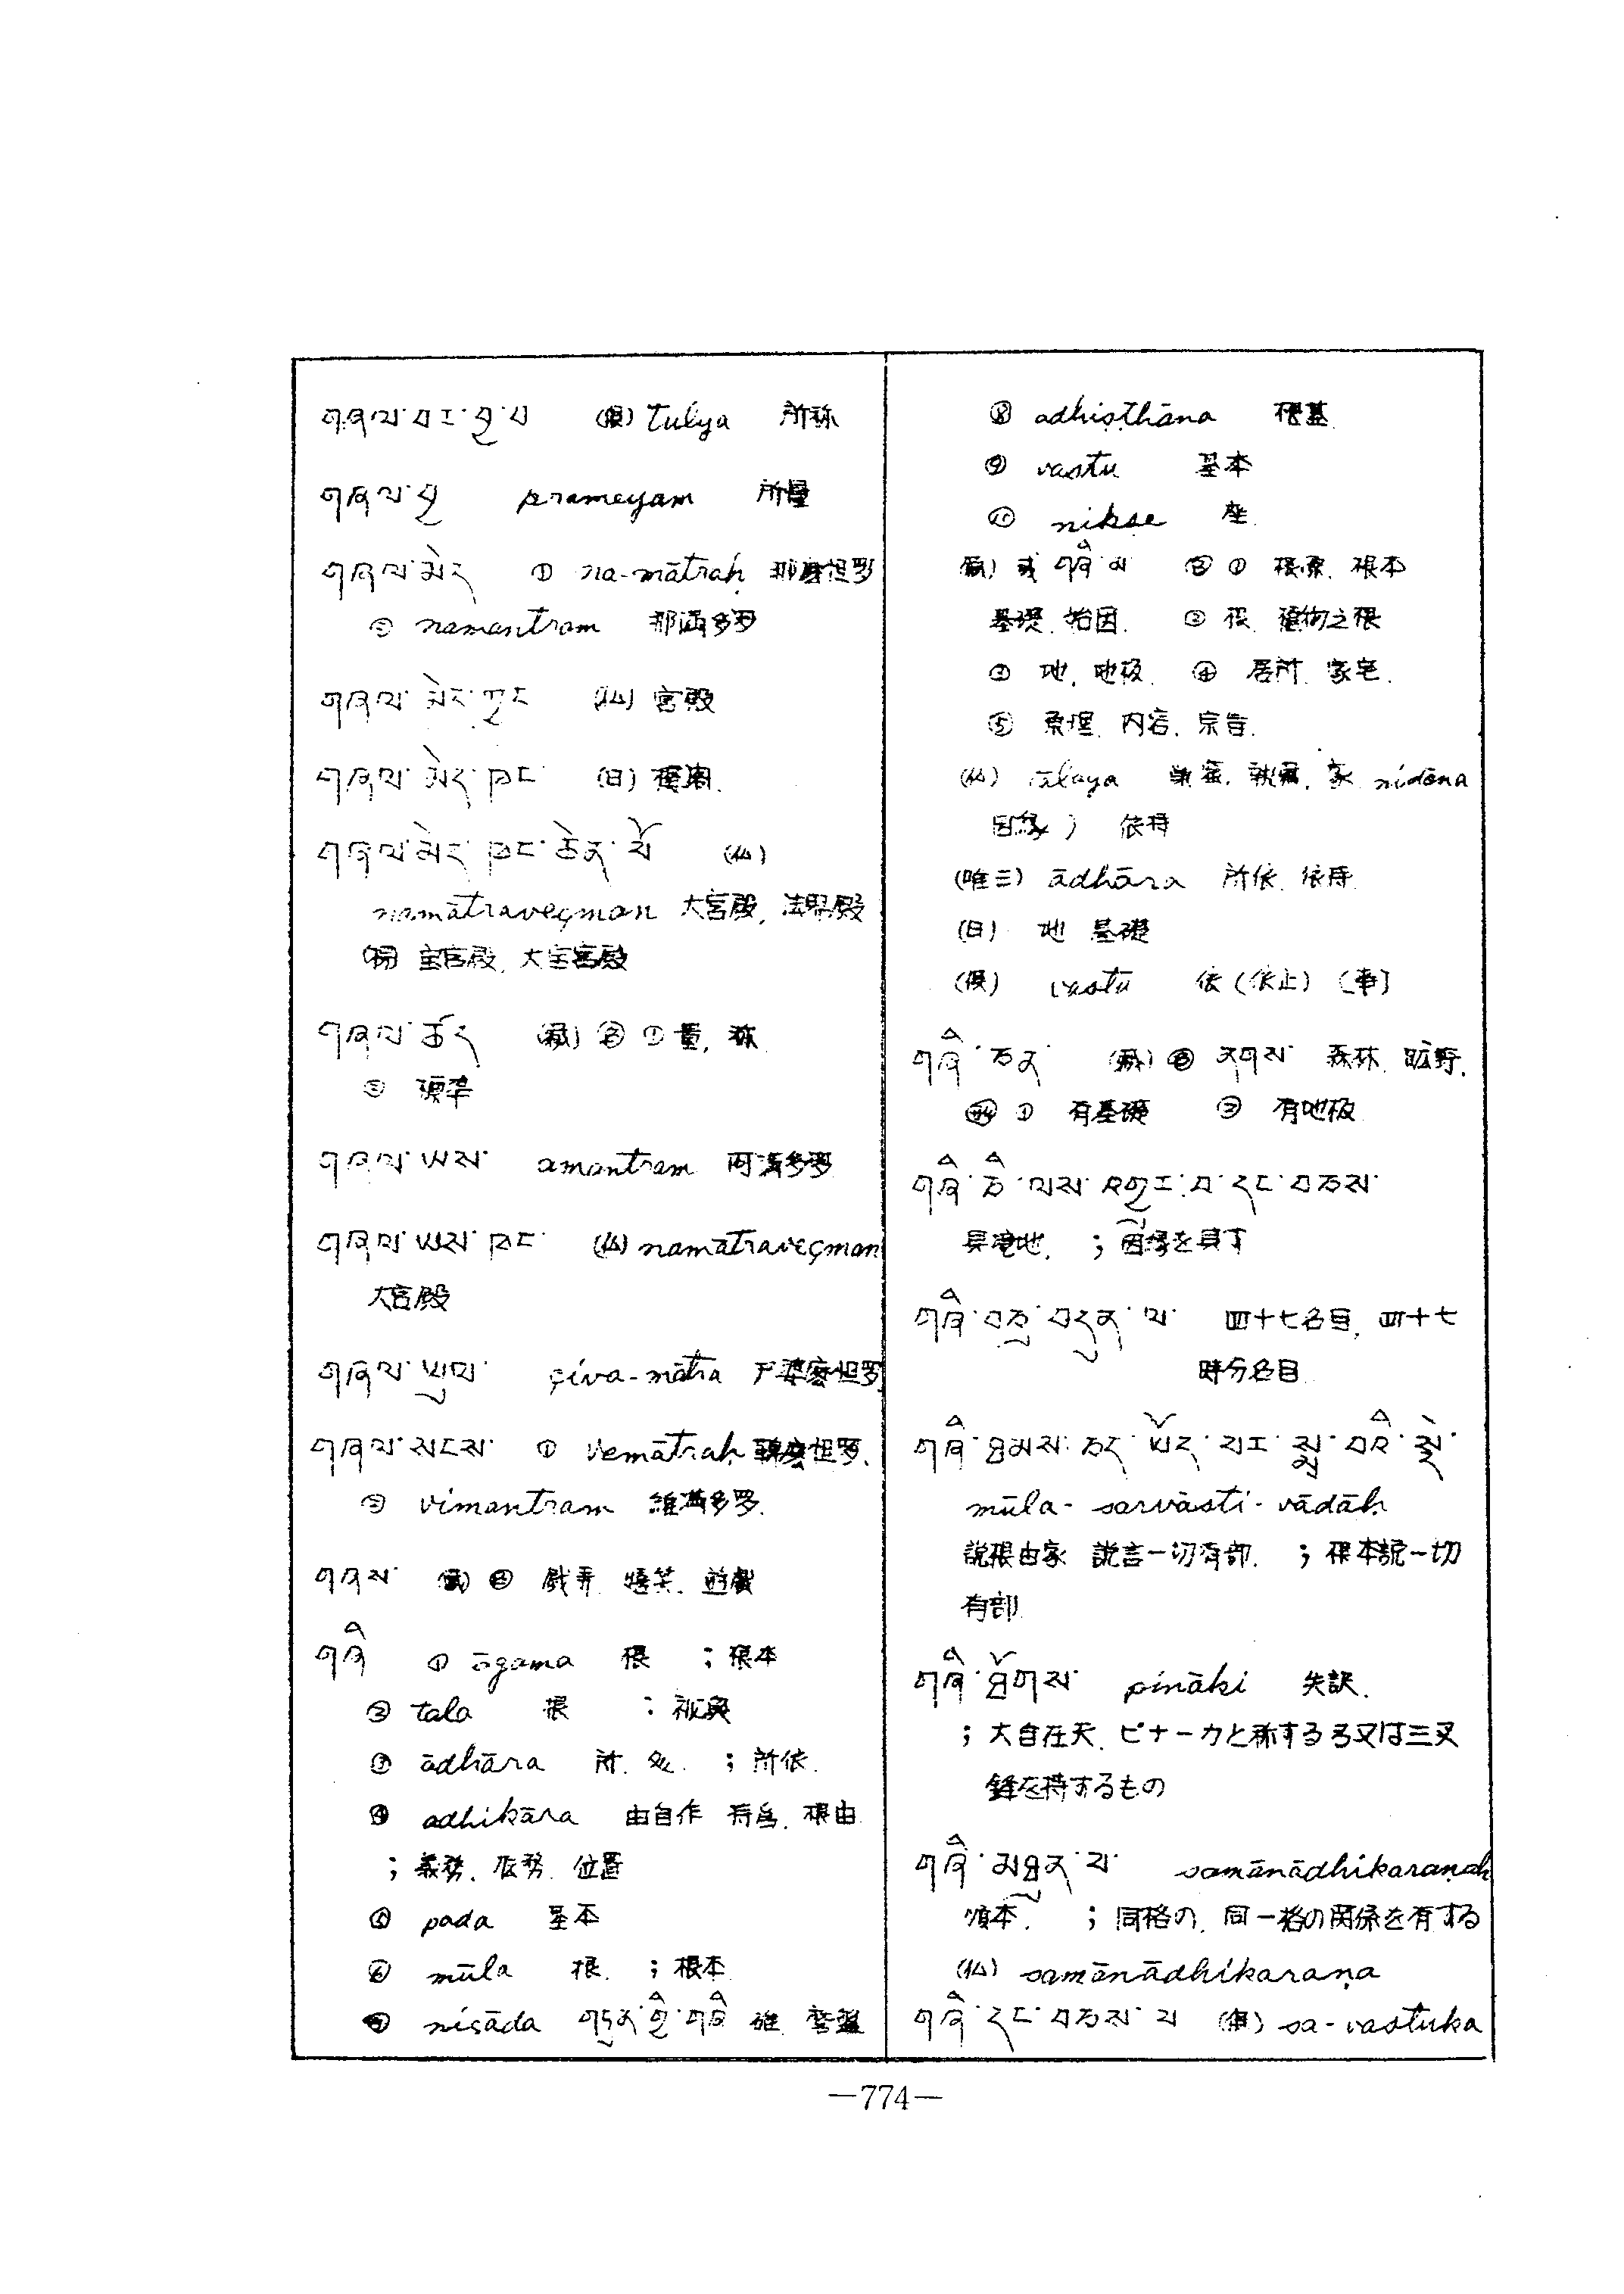 གཞལ་བར་བྱ་བ (倶) tulya 所称
གཞལ་བྱ prameyam 所量
གཞལ་མེད ① na-mātraḥ 那摩怛罗
② namantram 那満多罗
གཞལ་མེད་ཀྱང (仏) 宮殿
གཞལ་མེད་ཁང (日) 楼閣.
གཞལ་མེད་ཁང་ཆེན་པོ (仏)
namātraveçman 大宮殿, 法界殿
宝宮殿, 大宝宮殿
གཞལ་ཚད (蔵) ① 量, 称
② 標準
གཞལ་ཡས་ amantram 阿満多罗
གཞལ་ཡས་ཁང་ (仏) namātraveçman
大宮殿
གཞལ་ཡུལ་ çiva-mātra 尸婆摩怛罗
གཞལ་སངས་ ① vemātraḥ 摩怛罗.
② vimantram 維満多罗.
གཞས་ (蔵) 戯弄, 嬉笑, 遊戯
གཞི ① āgama 根 ; 根本
② tala 根 ;
③ ādhāra 所, 処. ; 所依.
④ adhikāra 由自作 根由
; 義務, 位置
⑤ pada 基本
⑥ mūla 根. ; 根本
⑦ niṣāda གདན་གྱི་གཞི
⑧ adhiṣṭhāna 根基
⑨ vastu 基本
⑩ nikṣe 座
蔵) 或 གཞི་མ ① 根源, 根本
基礎, 始因. ② 根, 植物之根
③ 地, 地板. ④ 居所, 家宅.
⑤ 原理, 内容, 宗旨.
(仏) ālaya 執蔵, 家 nidāna
因縁 ) 依持
(唯三) ādhāra 所依, 依持
(日) 地 基礎
(倶) vastu 依 (依止) [事]
གཞི་ཅན་ (蔵) ནགས་ 森林, 曠野.
① 有基礎 ② 有地板
གཞི་ཅི་ལས་འགྱུར་བ་དང་བཅས་
; 因縁を具す
གཞི་བཅུ་བདུན་པ་ 四十七名目, 四十七
時分名目
གཞི་ཐམས་ཅད་ཡོད་པར་སྨྲ་བའི་སྡེ་
mūla-sarvāsti-vādāḥ
説根由家 説言一切有部. ; 根本説一切
有部
གཞི་ཐོགས་ pināki 失訳.
; 大自在天, ピナーカと称する弓又は三叉
鋒を持するもの
གཞི་མཐུན་པ་ samānādhikaraṇaḥ
順本. ; 同格の, 同一格の関係を有する
(仏) samānādhikaraṇa
གཞི་དང་བཅས་པ (倶) sa-vastuka
—774—